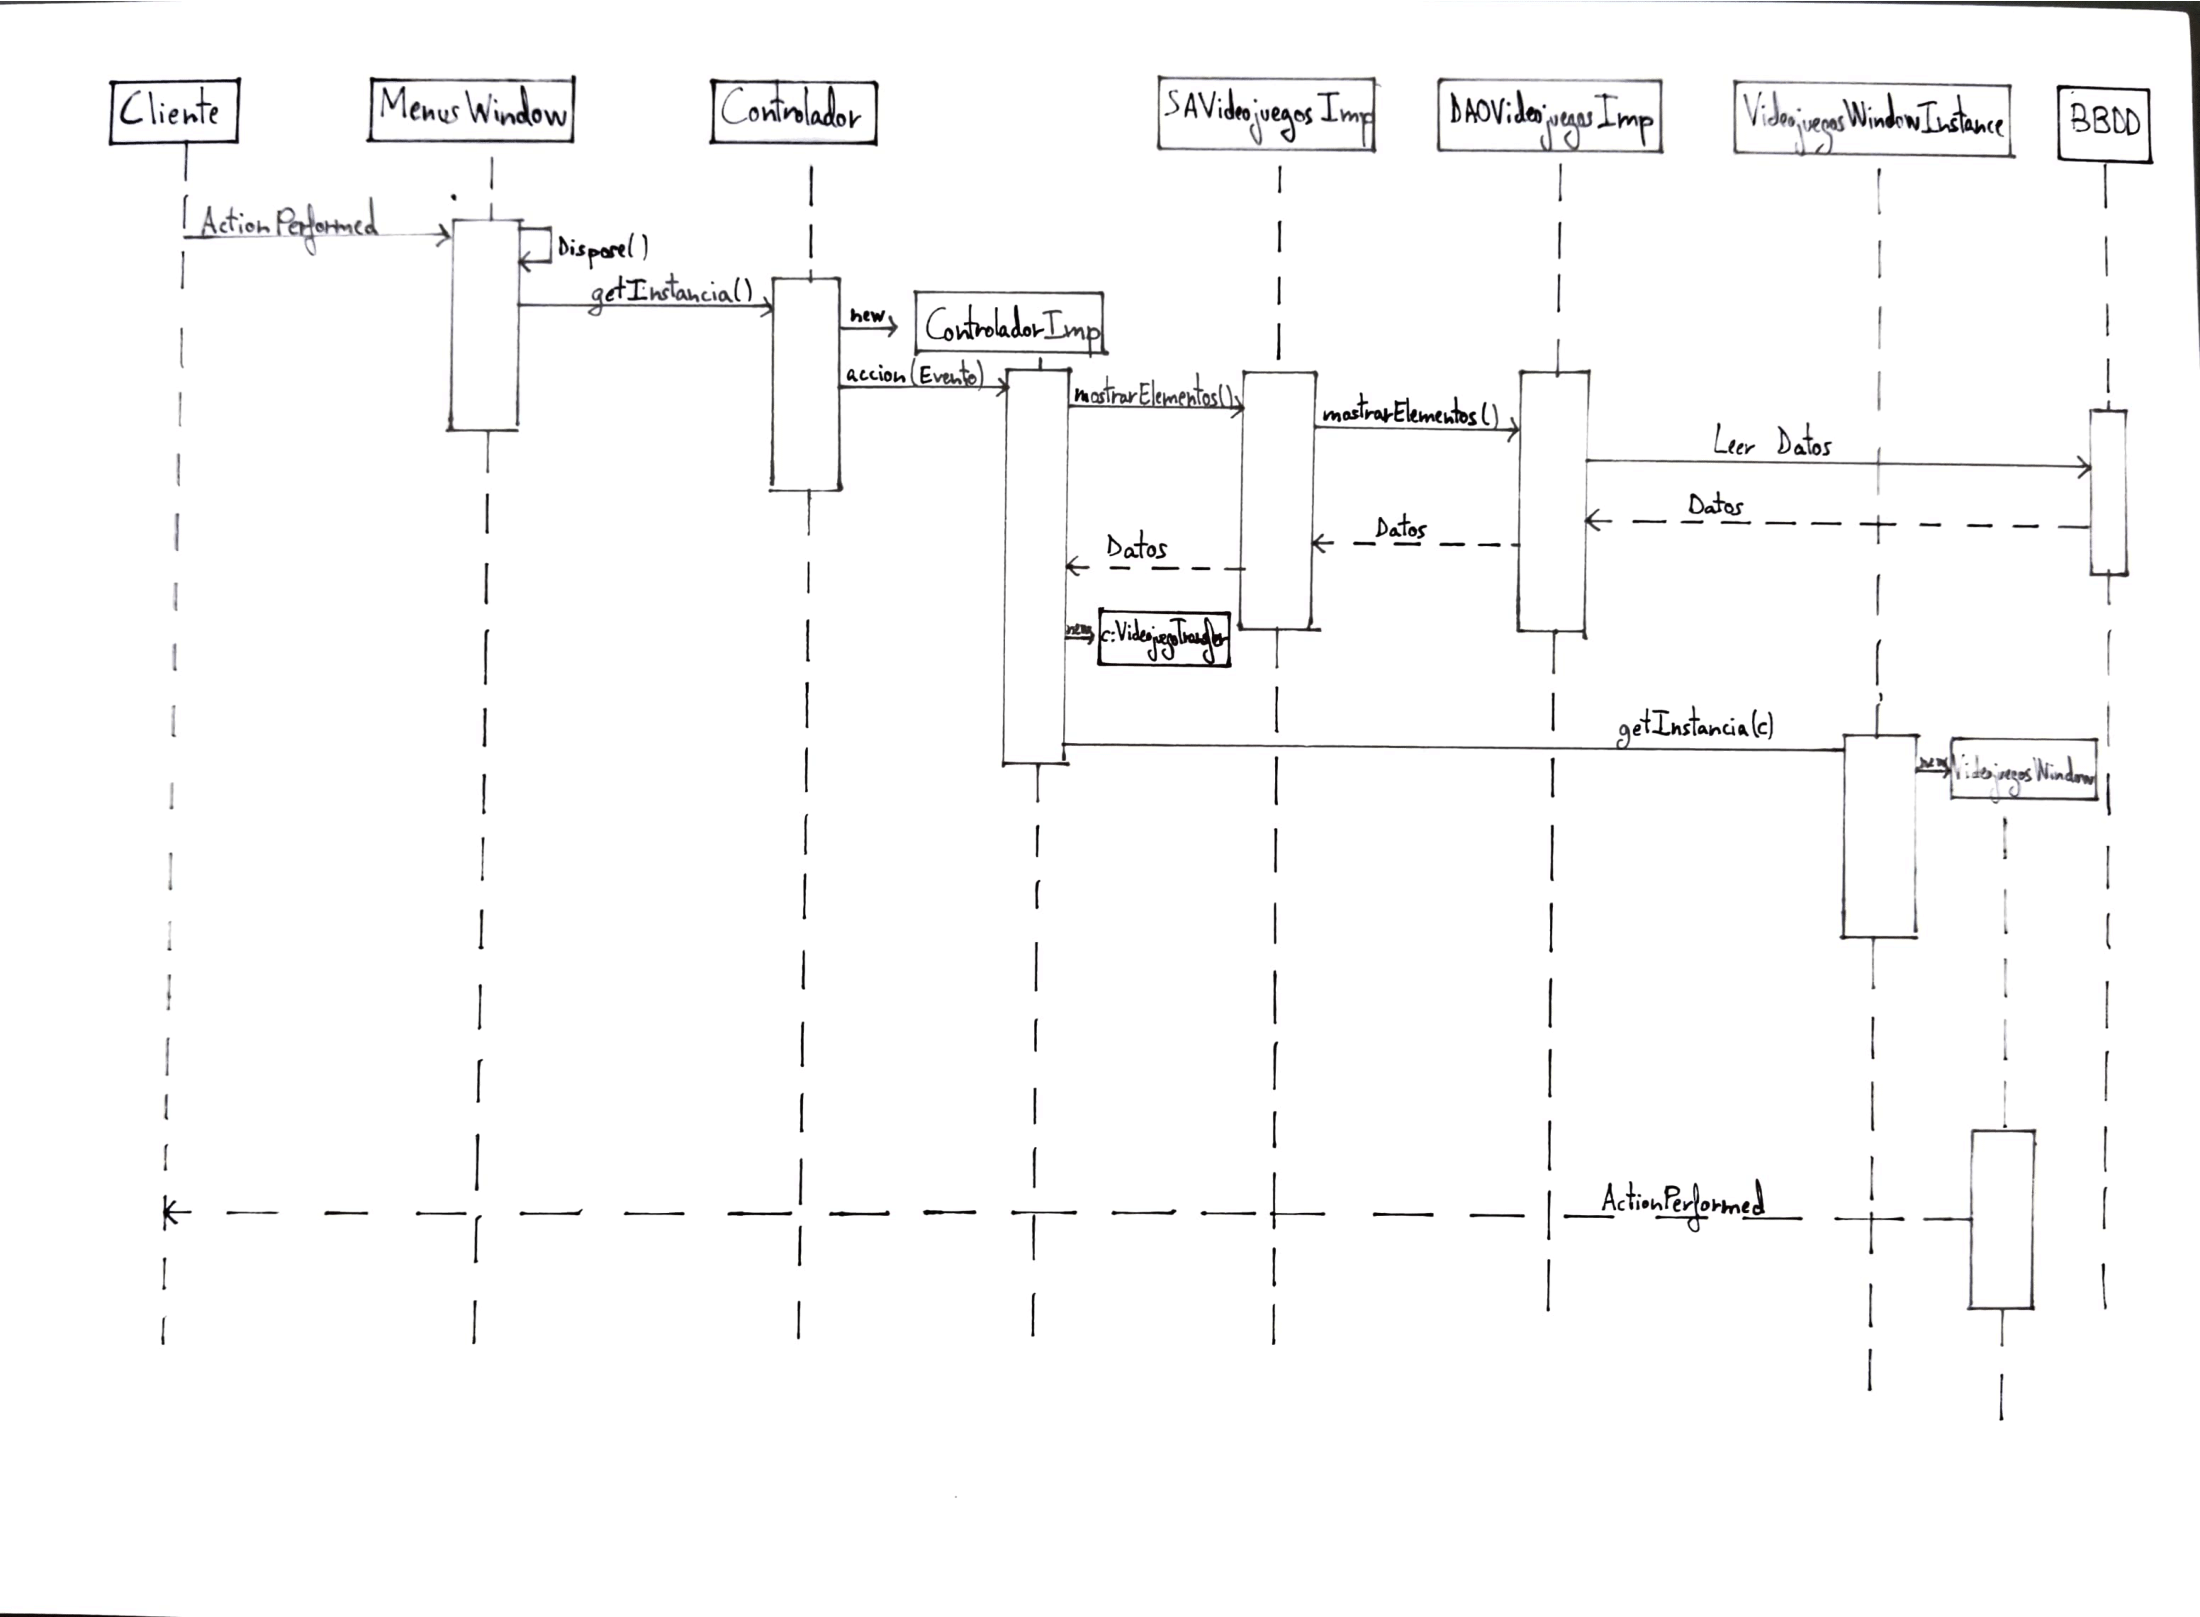 Cliente
MenusWindow
Controlador
SAVideojuegosImp
DAOVideojuegosImp
VideojuegosWindowInstance
BBDD
ActionPerformed
Dispose()
getInstancia()
new
ControladorImp
accion(Evento)
mostrarElementos()
mostrarElementos()
Leer Datos
Datos
Datos
Datos
new
c:VideojuegoTransfer
getInstancia(c)
new
VideojuegosWindow
ActionPerformed